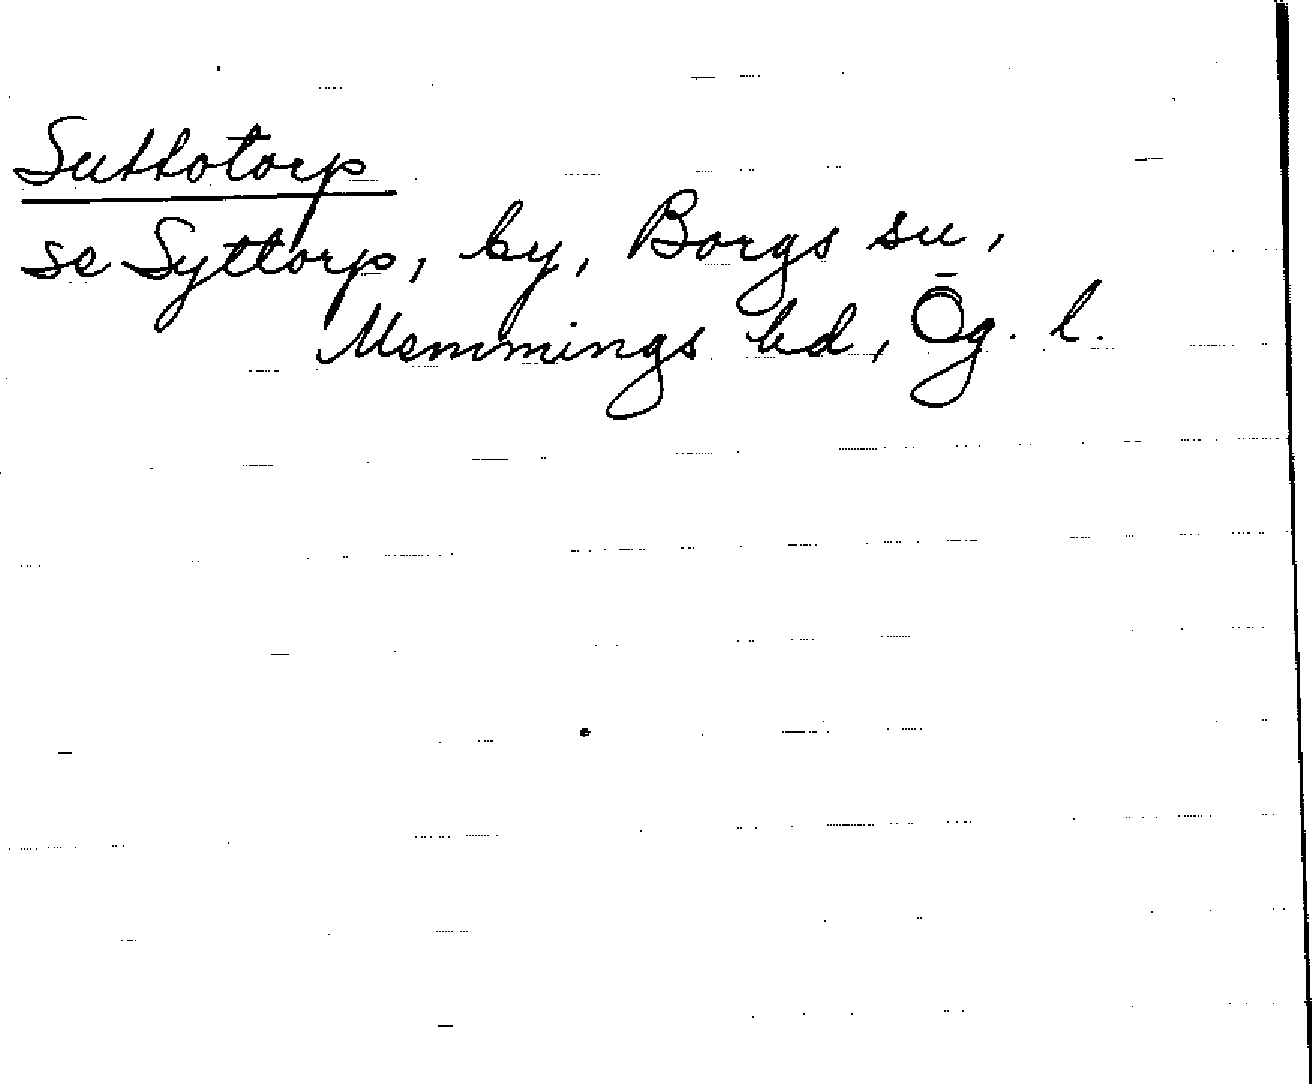 Suttotorp
se Syttorp, by, Borgs sn,
Memmings hd, Ög. l.